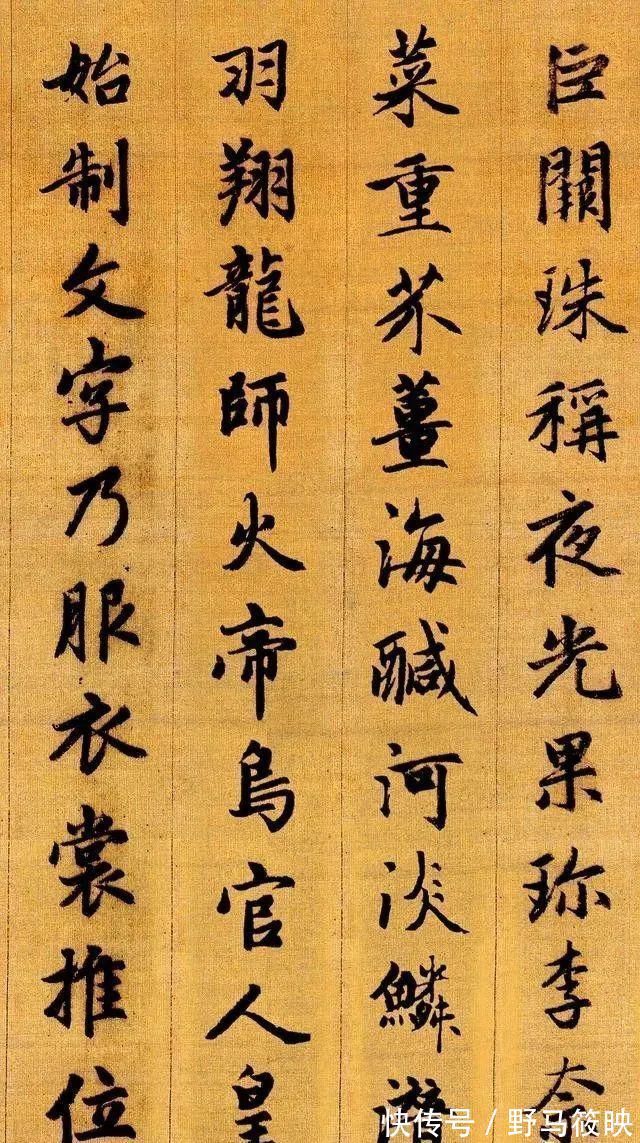 巨闕珠稱夜光果珎李柰
菜重芥薑海醎河淡鱗游
羽翔龍師火帝鳥官人皇
始制文字乃服衣裳推位
快传号/野马筱映